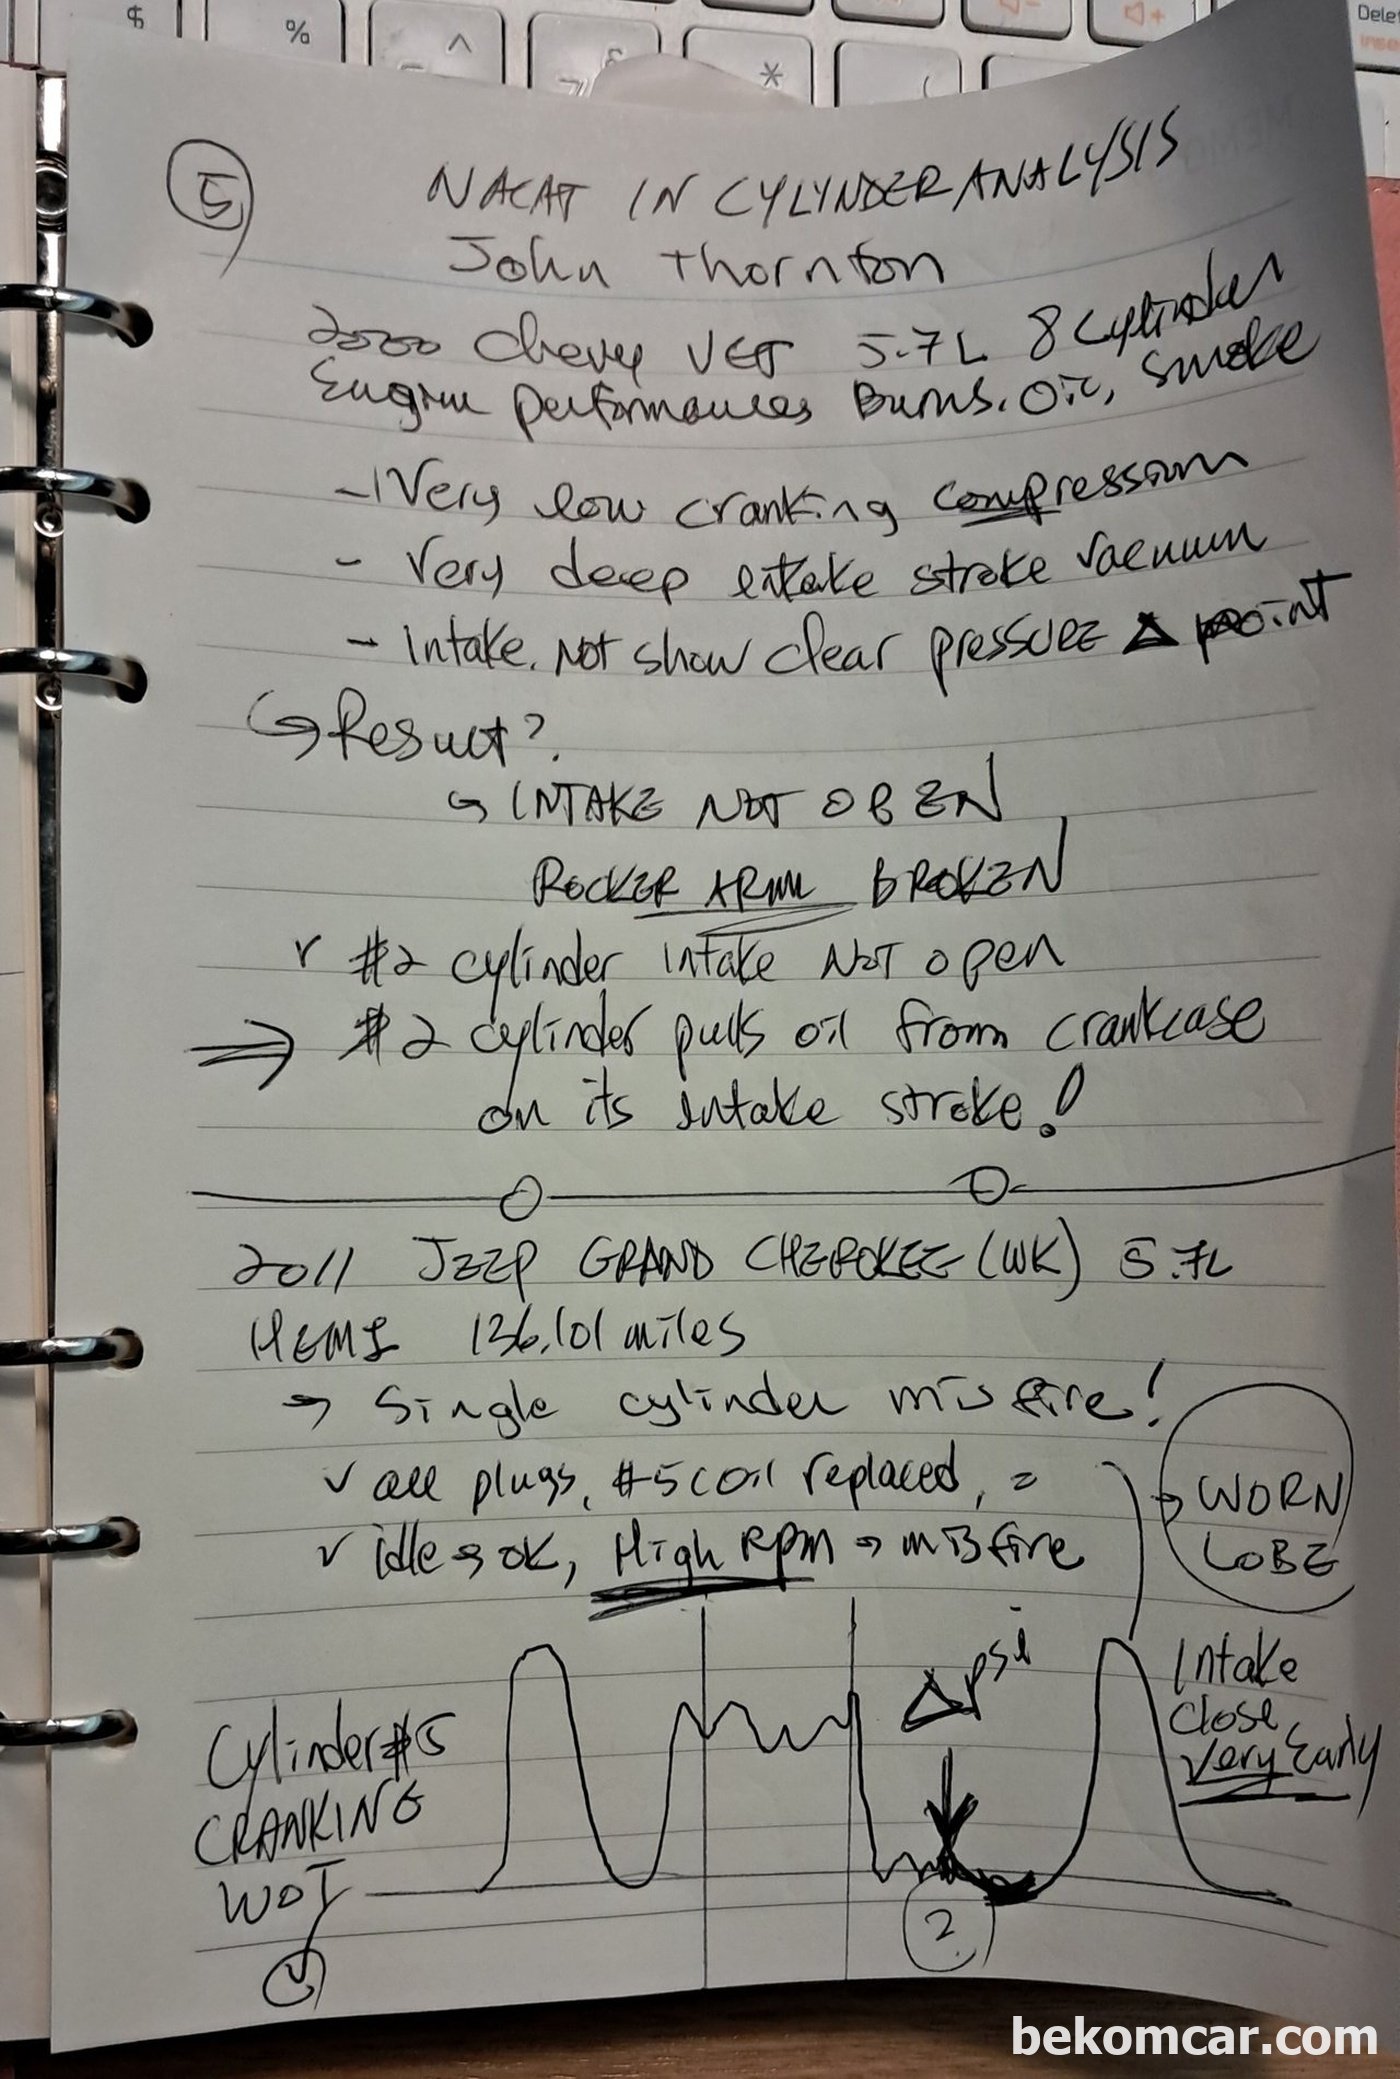 $
%
^
*
(
Dele
Inse
5
NACAT IN CYLYNDER ANALYSIS
John Thornton
2000 Chevy VET 5.7L 8 Cylinder
Engine Performances Burns. Oil, Smoke
- Very low cranking compression
- Very deep intake stroke vacuum
- Intake. Not show clear pressure Δ point
↳ Result?
↳ INTAKE NOT OPEN
ROCKER ARM BROKEN
v #2 cylinder intake NOT open
⇒ #2 cylinder pulls oil from crankcase
on its intake stroke!
2011 JEEP GRAND CHEROKEE (WK) 5.7L
HEMI 136.101 miles
→ Single cylinder misfire!
v all plugs, #5 coil replaced, =
v idle → OK, High RPM → misfire
→ WORN
LOBE
Δ psi
Intake
close
Very Early
Cylinder #5
CRANKING
WOT
2
bekomcar.com